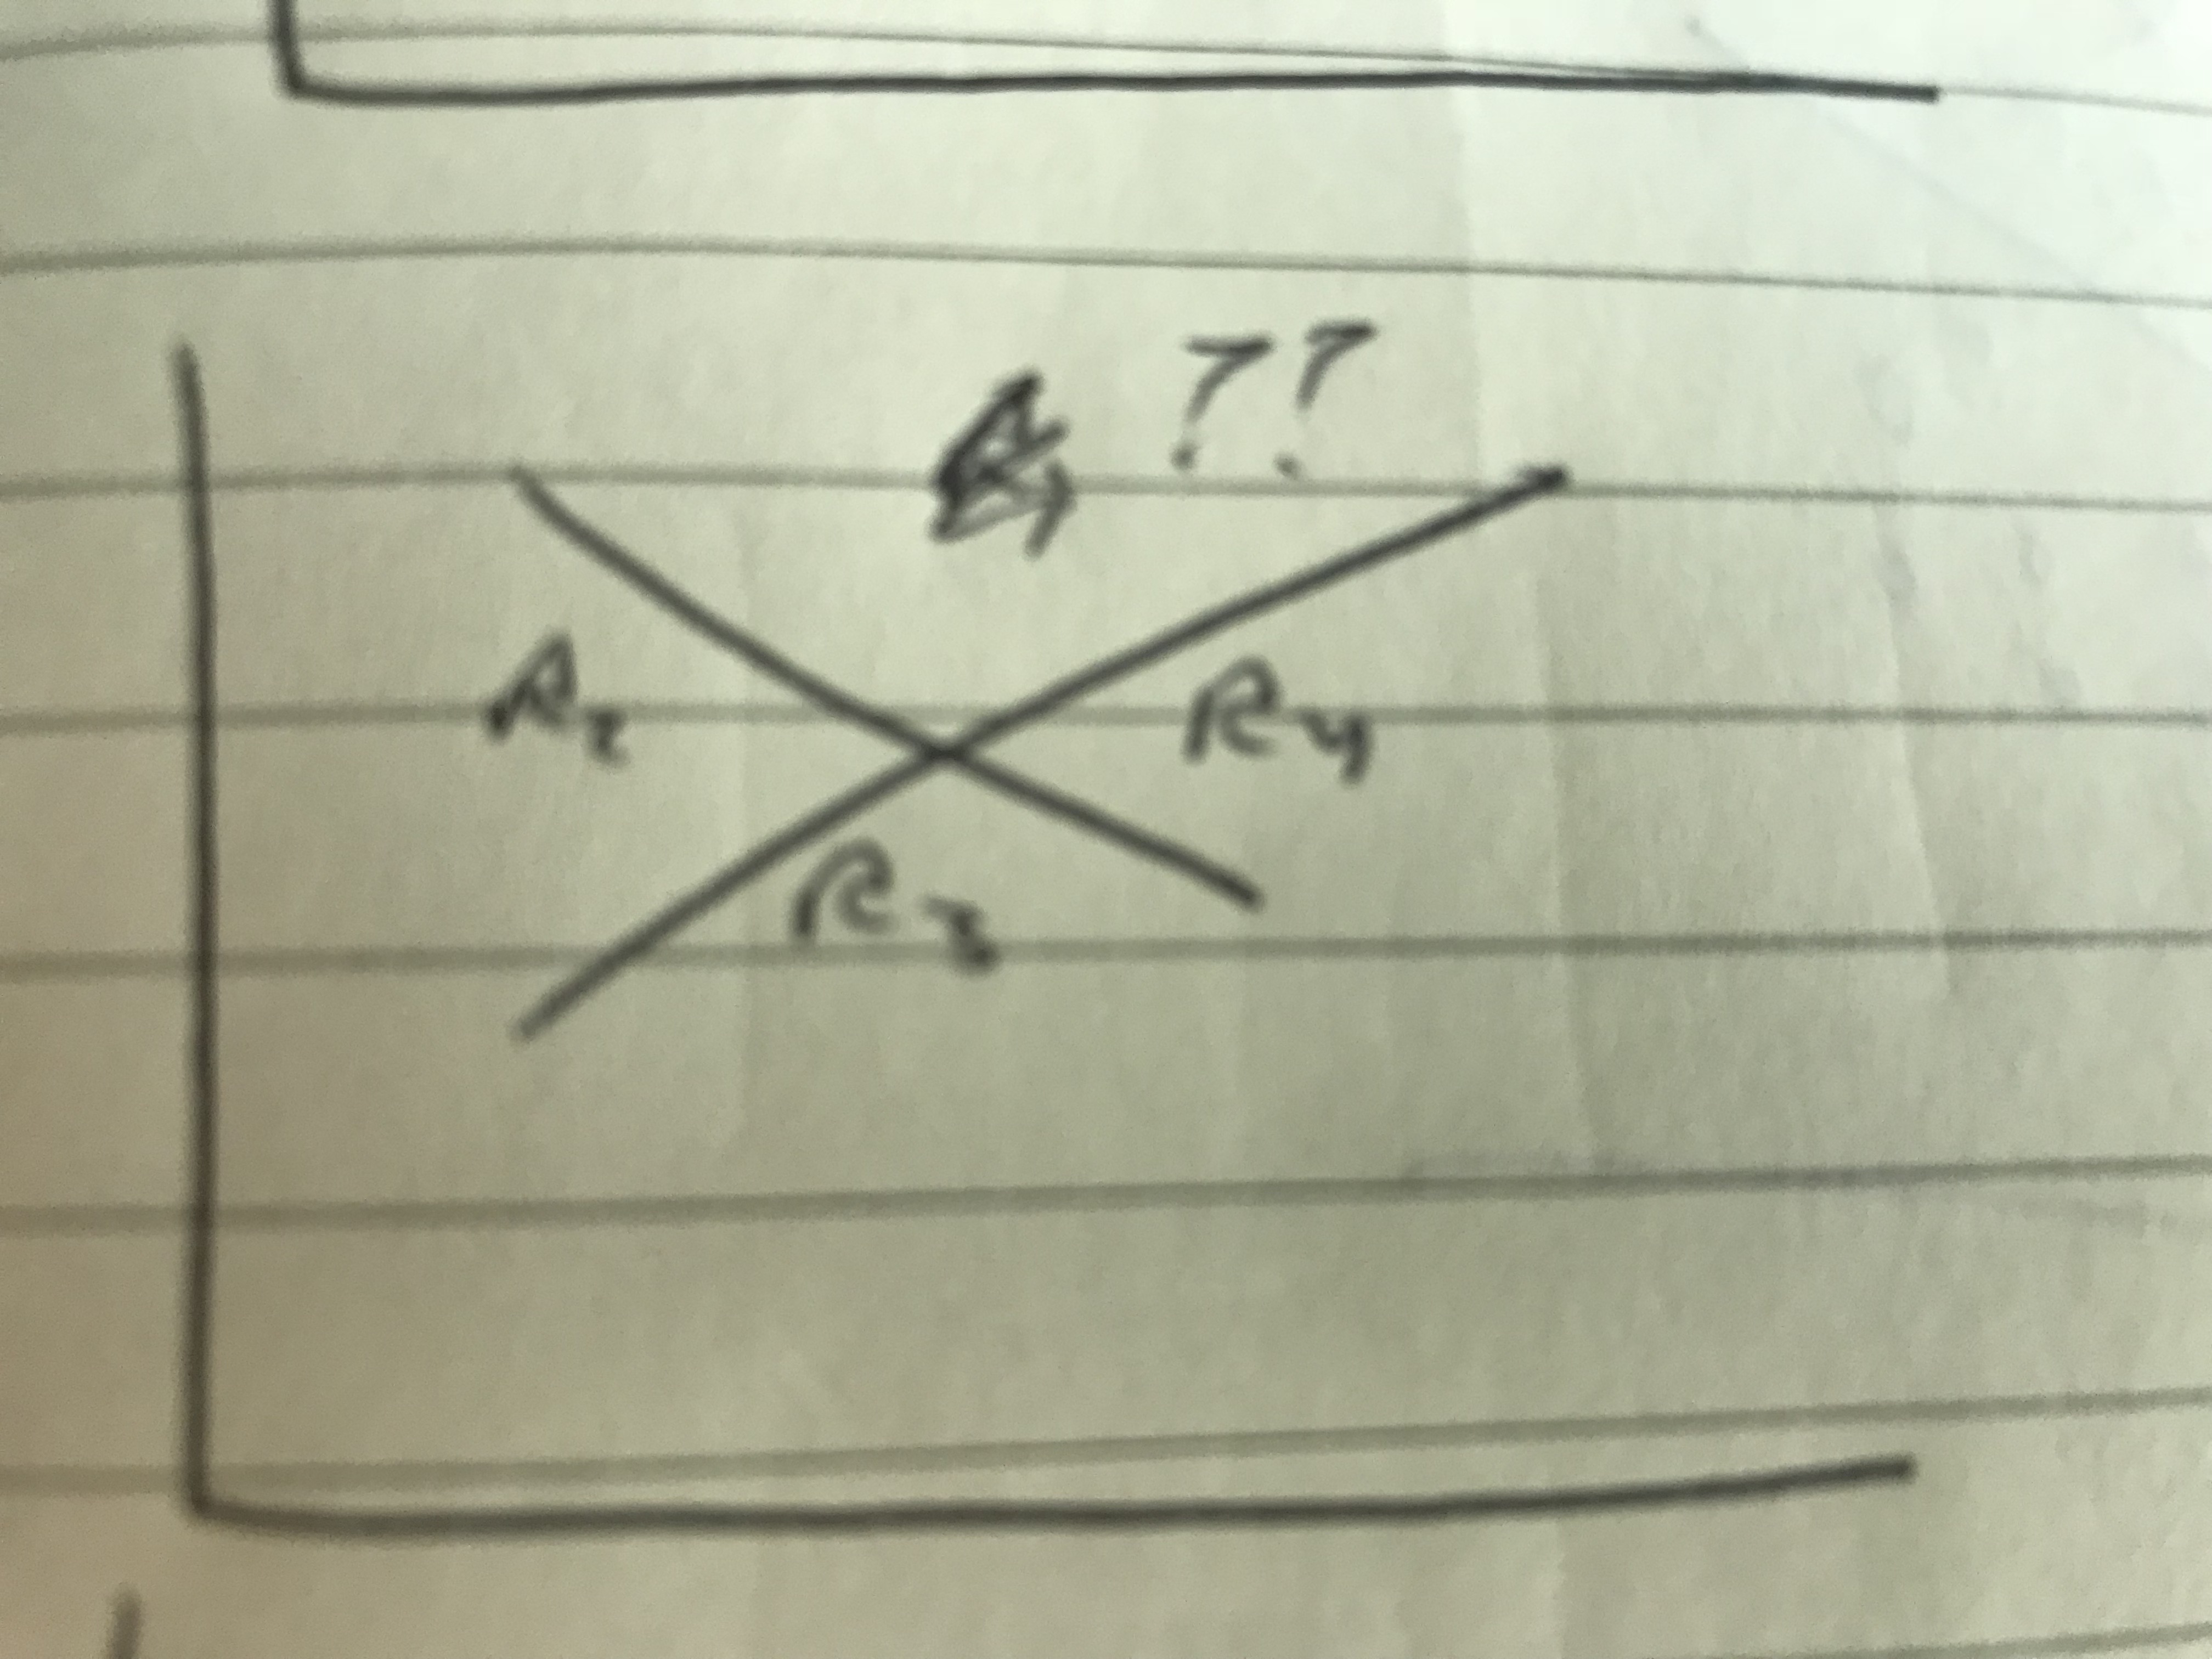 R1 ??
R2
R4
R3